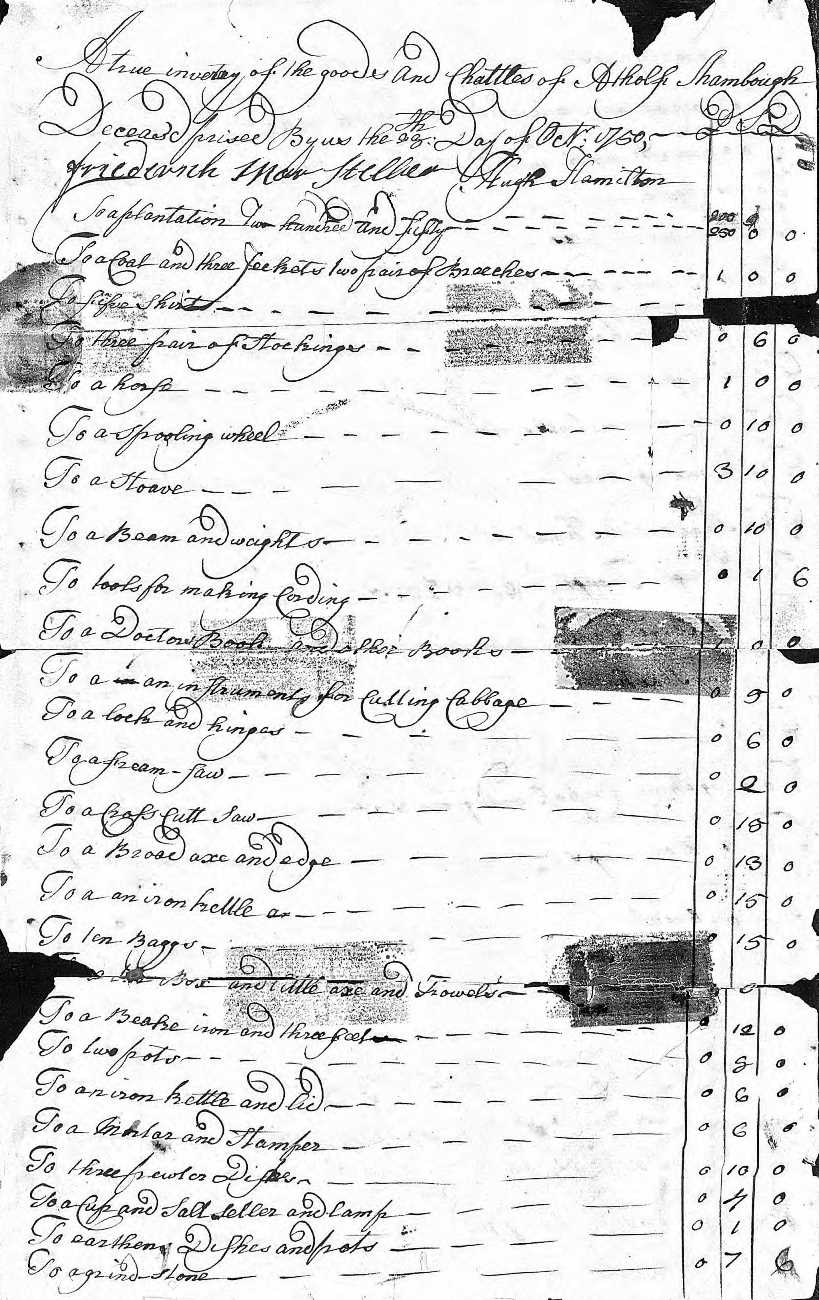 A true invetey of the goods and Chattles of Atholf Shambough
Deceasd prised By us the 28th Day of Octr. 1750, £ S D
Hugh Hamilton
To a plantation Two hundred and fifty 200
250 0 0
To a Coat and three Jeckets two pair of Breeches 1 0 0
To shirts
To three pair of Stockinges 0 6 0
To a horse 1 0 0
To a spooling wheel 0 10 0
To a Stoave 3 10 0
To a Beam and weights 0 10 0
To tools for making Cording 0 1 6
To a Doctors Book and other Books 1 0 0
To a an instruments for Cutting Cabbage 0 5 0
To a lock and hinges 0 6 0
To a fream-saw 0 2 0
To a Cross Cutt Saw 0 18 0
To a Broad axe and edge 0 13 0
To a an iron kettle 0 15 0
To ten Baggs 0 15 0
Box and little axe and Trowels
To a Beake iron and three 0 12 0
To two pots 0 8 0
To an iron kettle and lid 0 6 0
To a Mortar and Stamper 0 6 0
To three pewter Dishes 0 10 0
To a Cup and Salt seller and lamp 0 4 0
To earthen Dishes and pots 0 1 0
To a grind-stone 0 7 6